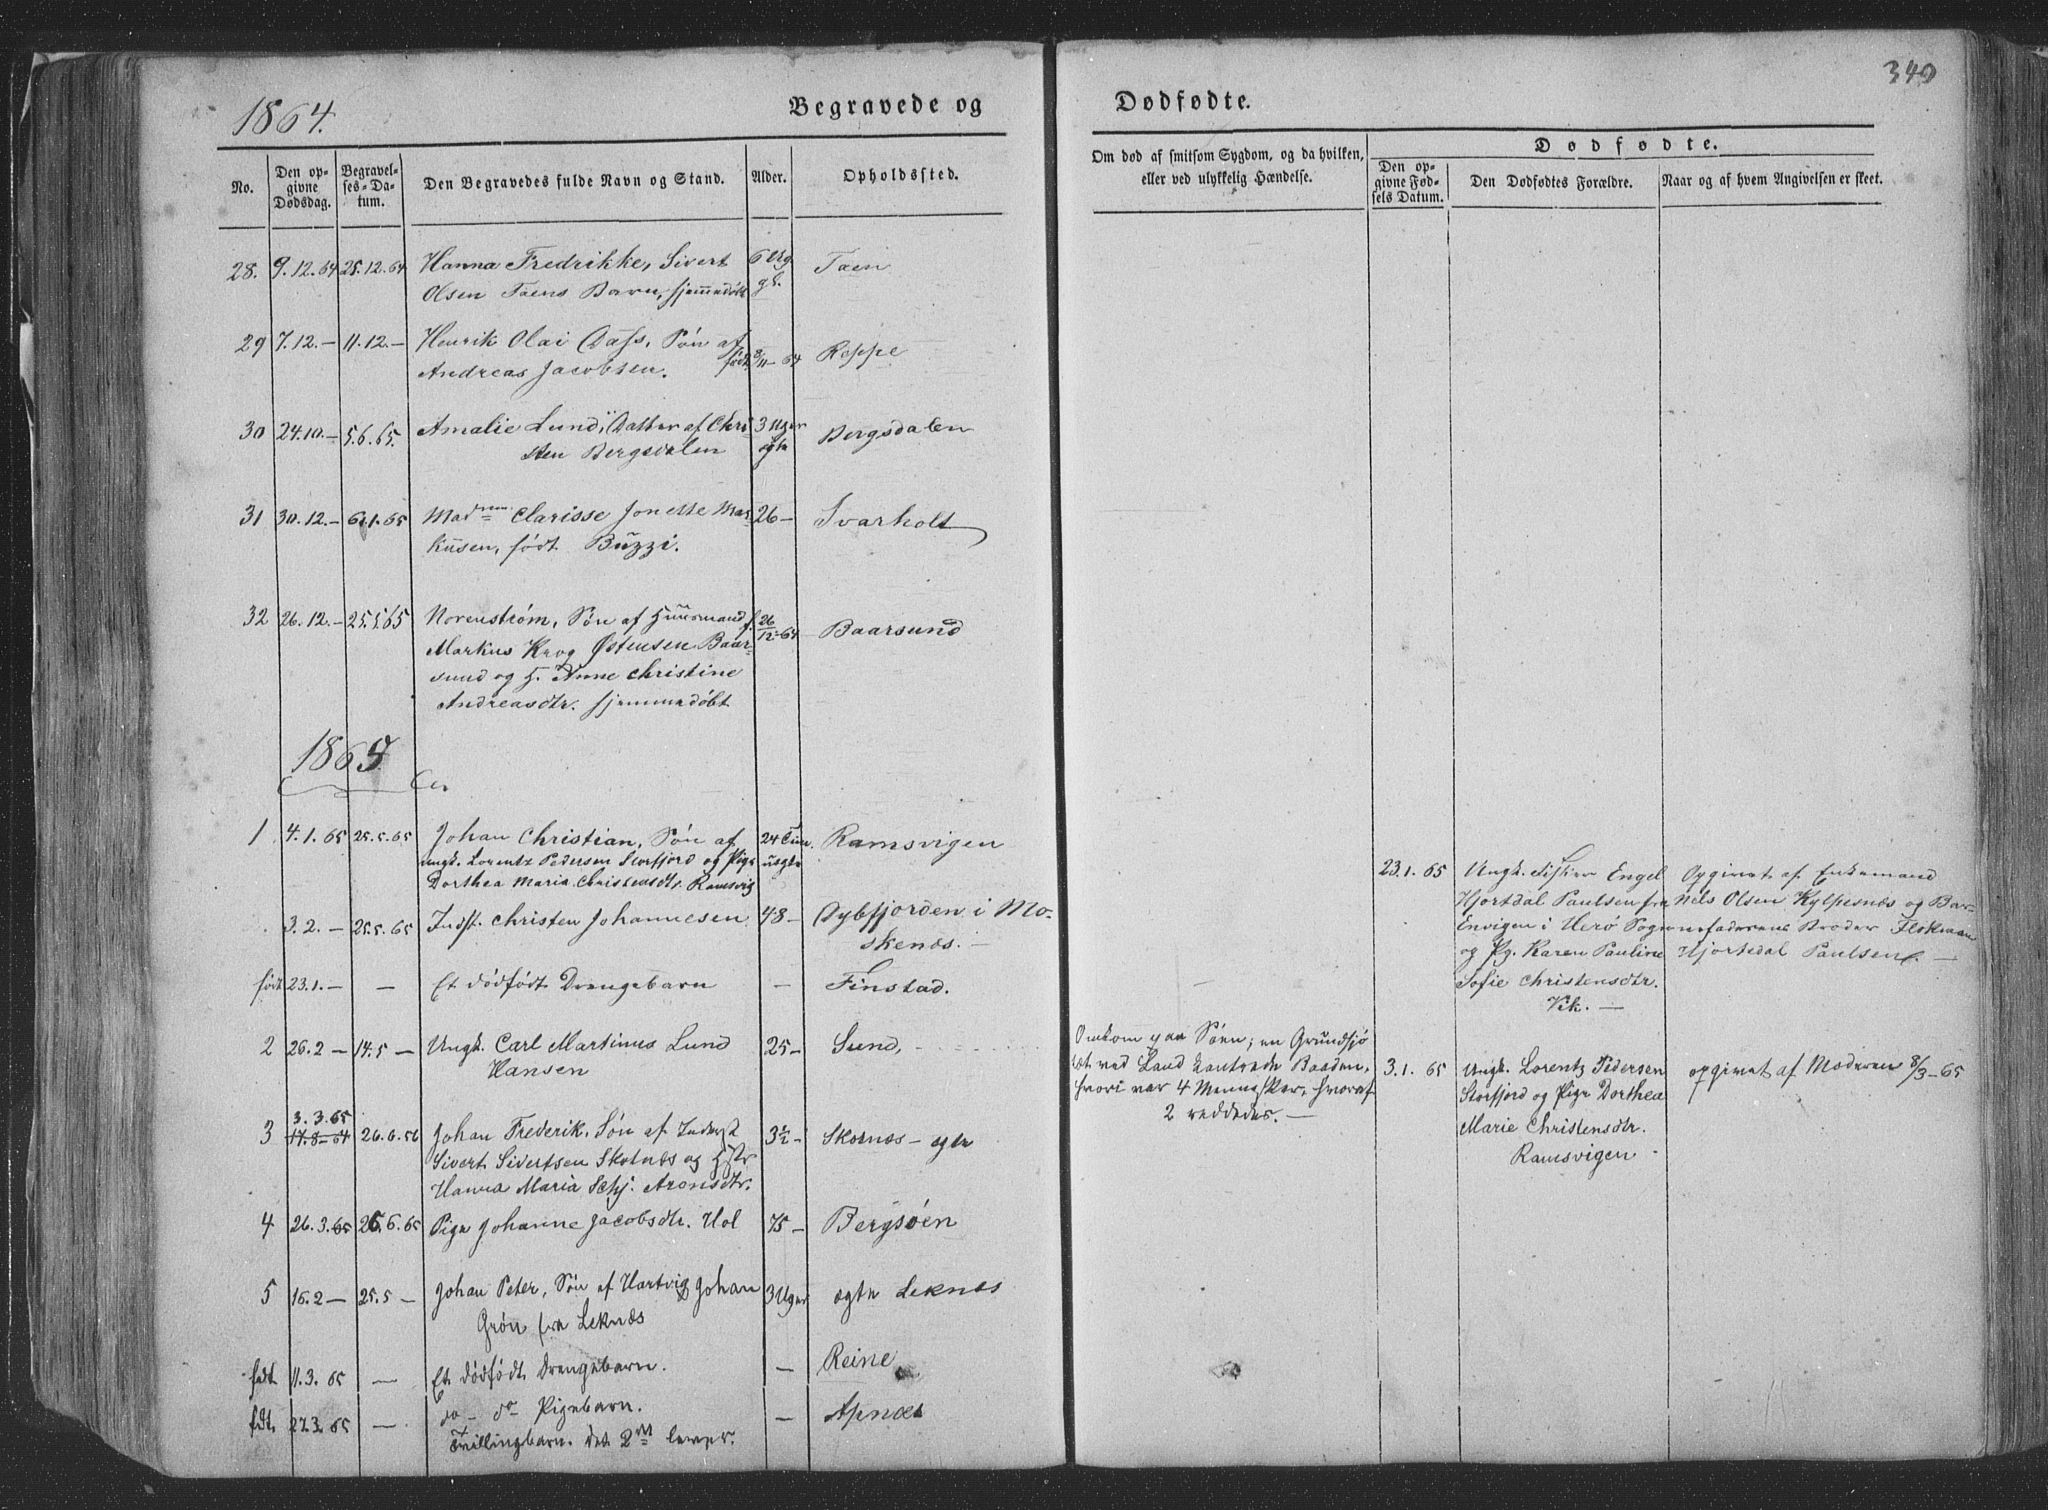 340
1864.
Begravede og
Dødfødte.
No.
Den opgivne Dødsdag.
Begravelses-Datum.
Den Begravedes fulde Navn og Stand.
Alder.
Opholdssted.
Om død af smitsom Sygdom, og da hvilken,
eller ved ulykkelig Hændelse.
Dødfødte.
Den opgivne Fødsels Datum.
Den Dødfødtes Forældre.
Naar og af hvem Angivelsen er skeet.
28. 9.12.64 25.12.64 Hanna Fredrikke, Sivert 6 Ug Taen
Olsen Taens Barn, hjemmedøbt gl.
29 7.12.— 11.12.— Henrik Olai Dass, Søn af Reppe
Andreas Jacobsen. født 8/11-64
30 24.10.— 5.6.65. Amalie Lund, Datter af Chri- 3 Uger Bergsdalen
sten Bergsdalen ægte
31 30.12.— 6.1.65 Madmm Clarisse Jonette Mar- 26— Svarholt
kusen, født Buzzi.
32 26.12.— 25.5.65 Norenstrøm, Søn af Huusmand f. 26/12-64 Baarsund
Markus Krog Østensen Baar-
sund og H. Anne Christine
Andreasdtr. hjemmedøbt
1865
1 4.1.65 25.5.65 Johan Christian, Søn af 24 Tim. Ramsvigen
ungk. Lorentz Pedersen Storfjord og Pige uægte
Dorthea Maria Christensdtr. Ramsvig
3.2.— 25.5.65 Indst. Christen Johannesen 48— Dybfjorden i Mo-
skenæs.—
født 23.1.— — Et dødfødt Drengebarn — Finstad.
23.1.65 Ungk. Engel
Hjortdal Paulsen fra
Envigen i Herø Sogn
og Pg. Karen Pauline
Sofie Christensdtr.
Vik.—
Opgivet af Enkemand
Nels Olsen Kylpesnæs og Bar-
nefaderens Broder
Hjortdal Paulsen—
2 26.2— 14.5— Ungk. Carl Martinus Lund 25— Sund,
Hansen
Omkom paa Søen; en Grundsjø
tæt ved Land kantrede Baaden,
hvori var 4 Mennesker, hvoraf
2 reddedes.—
3.1.65 Ungk. Lorentz Pedersen
Storfjord og Pige Dorthea
Marie Christensdtr.
Ramsvigen.
opgivet af Moderen 8/3-65
3 3.3.65 17.8-64 26.6.56 Johan Frederik, Søn af Inderst 3½— Skotnæs— ægte
Sivert Sivertsen Skotnæs og Hstr
Hanna Maria Schj. Aronsdtr.
4 26.3.65 25.6.65 Pige Johanne Jacobsdtr. Hol 75— Bergsøen
5 16.2— 25.5— Johan Peter, Søn af Hartvig Johan 3 Uger ægte Leknæs
Grøn fra Leknæs
fdt 11.3.65 — Et dødfødt Drengebarn. — Reine
fdt. 27.3.65 — do— do— Pigebarn. — Apnæs
Tvillingbarn. det 2det lever.